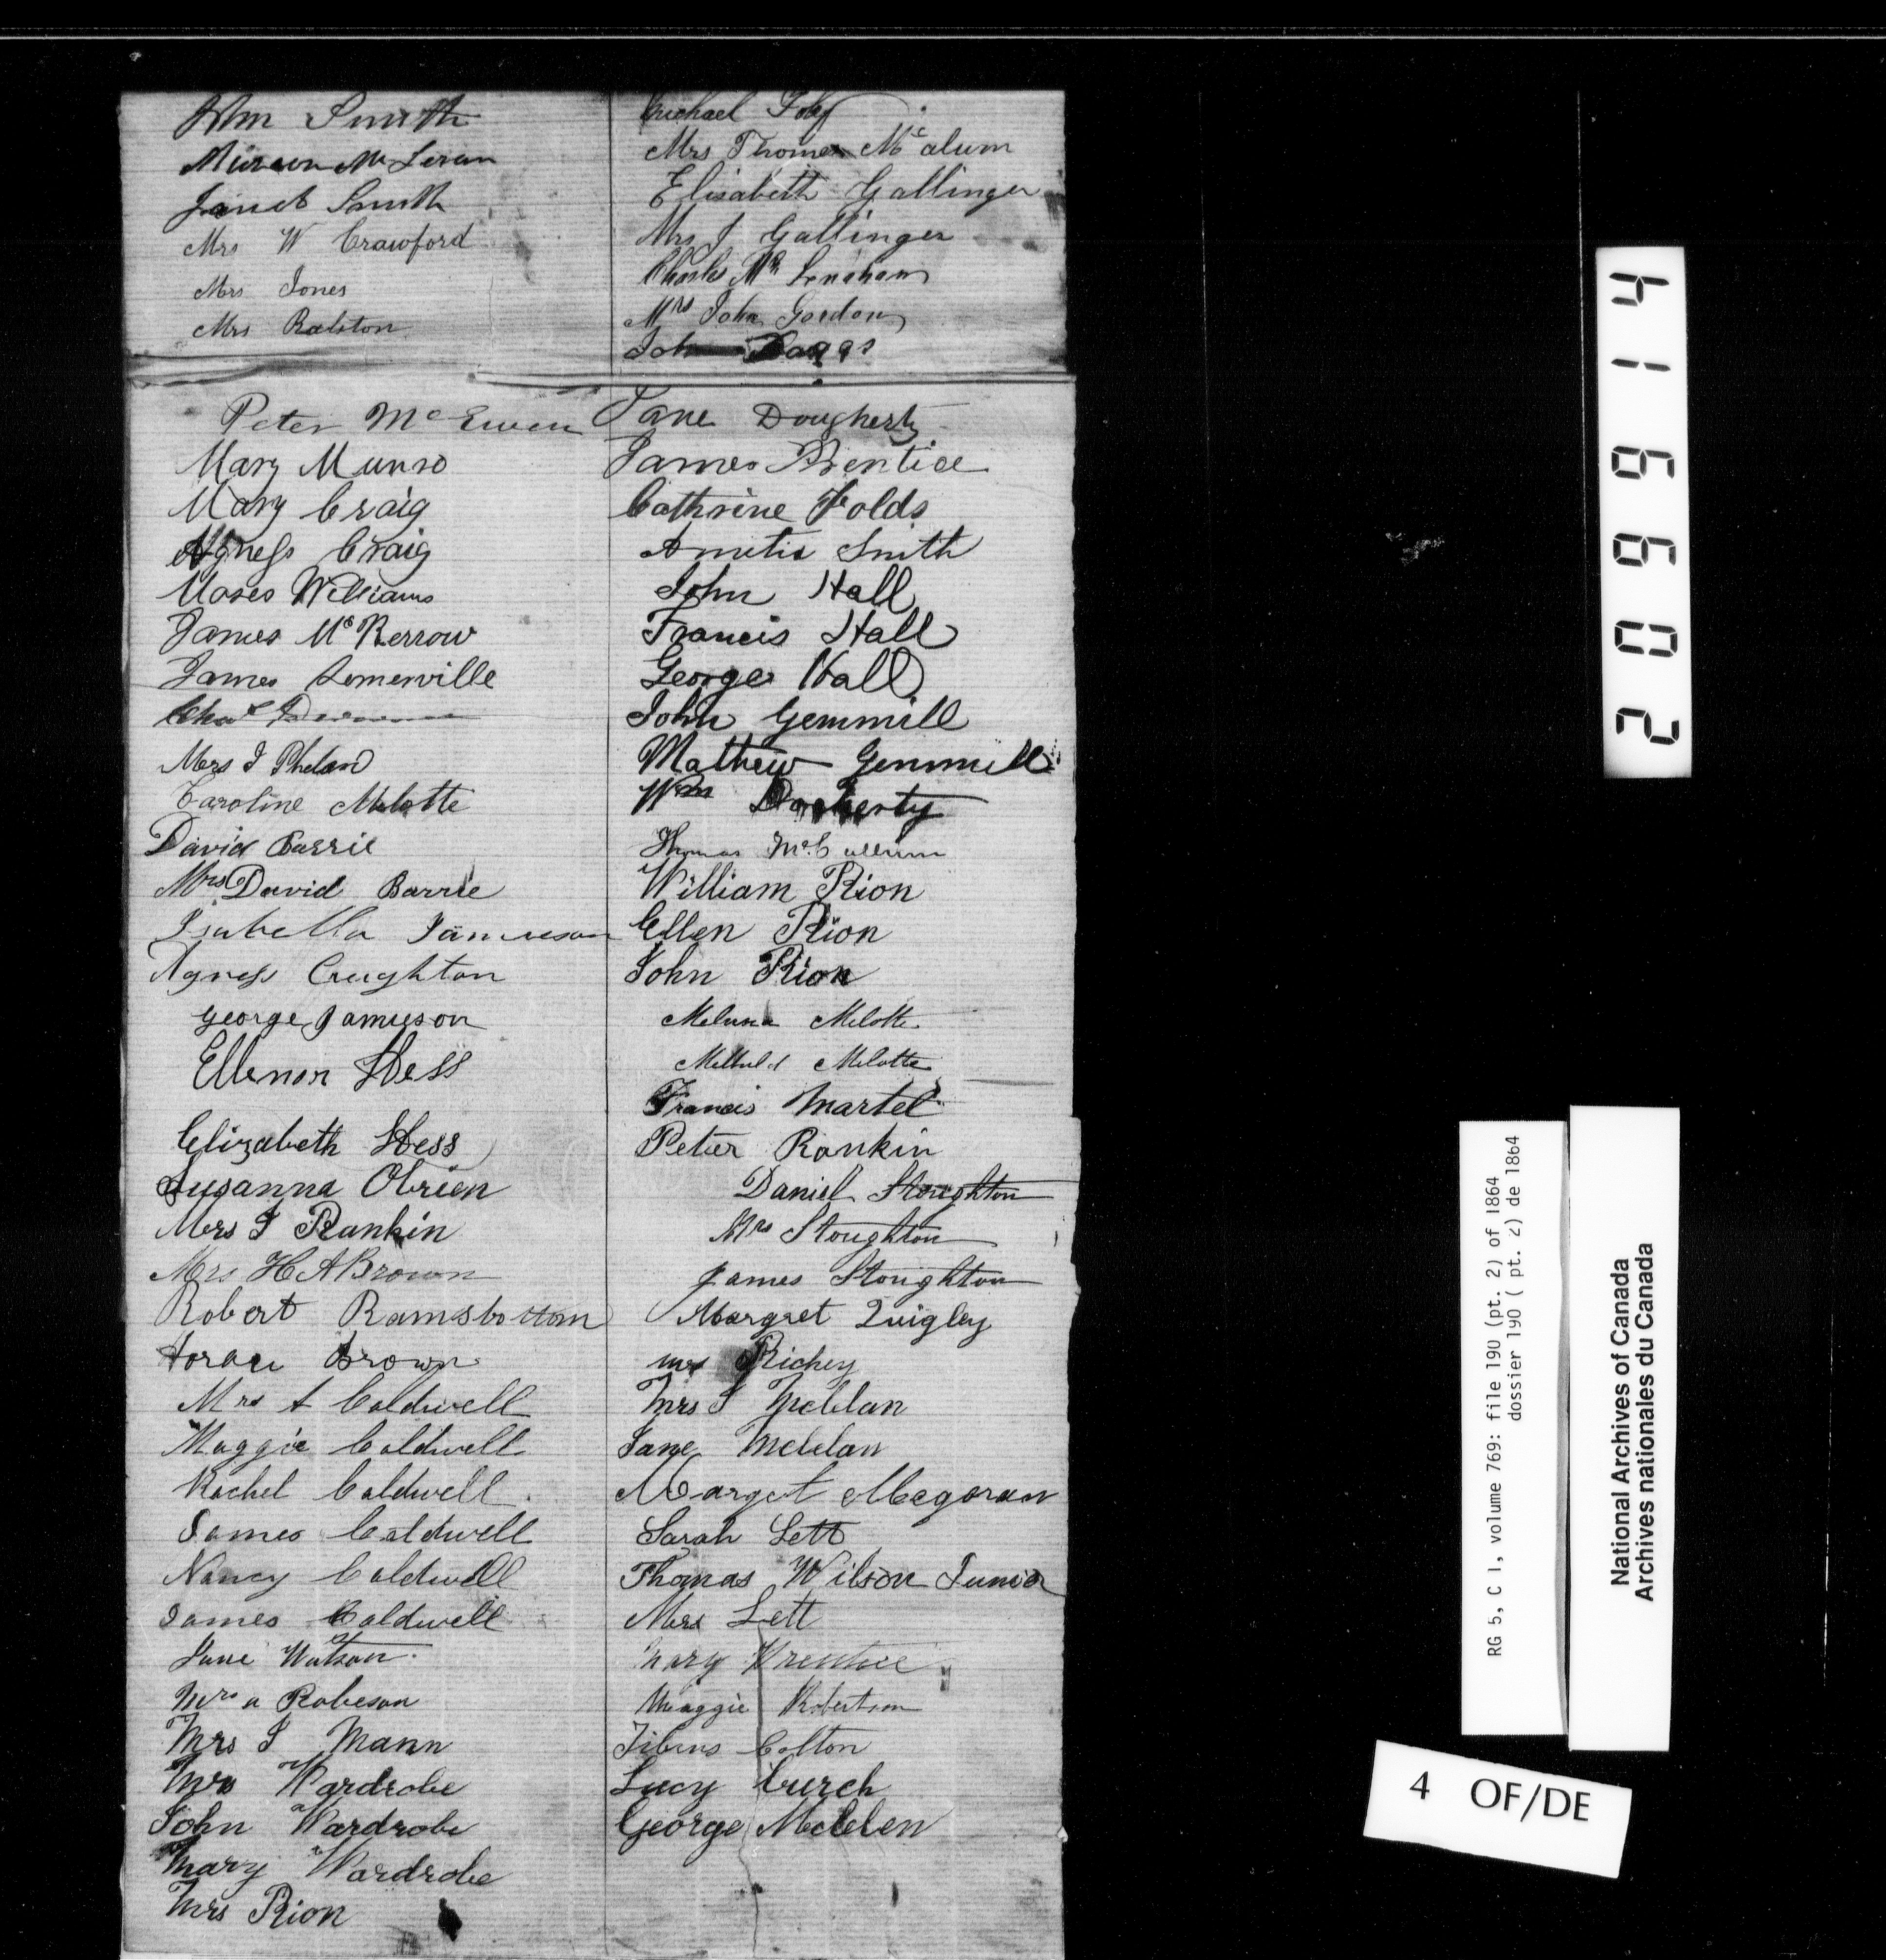 John Smith
Janet Smith
Mrs W Crawford
Mrs Jones
Mrs Ralston
Peter McEwen
Mary Munro
Mary Craig
Agness Craig
Moses Williams
James McKerrow
James Somerville
Chas
Mrs J Phelan
Caroline Melotte
David Barrie
Mrs David Barrie
Isabella Jamieson
Agness Creighton
George Jamieson
Ellenor Hess
Elizabeth Hess
Susanna Obrien
Mrs J Rankin
Mrs H A Brown
Robert Ramsbottom
Horace Brown
Mrs A Caldwell
Maggie Caldwell
Rachel Caldwell
James Caldwell
Nancy Caldwell
James Caldwell
Jane Watson
Mrs a Robeson
Mrs J Mann
Mrs Wardrobe
John Wardrobe
Mary Wardrobe
Mrs Rion
Michael
Mrs Thomas Mcalum
Elisabeth Gallinger
Mrs J Gallinger
Charles Mc Lenahan
Mrs John Gordon
John
Jane Dougherty
James Prentice
Cathrine Folds
Smith
John Hall
Francis Hall
George Hall
John Gemmill
Mathew Gemmill
Wm Dogherty
Thomas McCullum
William Rion
Ellen Rion
John Rion
Melotte
Melotte
Francis Martel
Peter Rankin
Daniel Stoughton
Mrs Stoughton
James Stoughton
Margret Quigley
Mrs Richey
Mrs J Mcklan
Jane Mcklan
Margret Megoran
Sarah Lett
Thomas Wilson Junior
Mrs Lett
Mary Prentice
Maggie Robertson
Colton
Lucy Curch
George Mcklen
20 6 6 1 4
RG 5, C 1, volume 769: file 190 (pt. 2) of 1864
dossier 190 ( pt. 2) de 1864
National Archives of Canada
Archives nationales du Canada
4 OF/DE